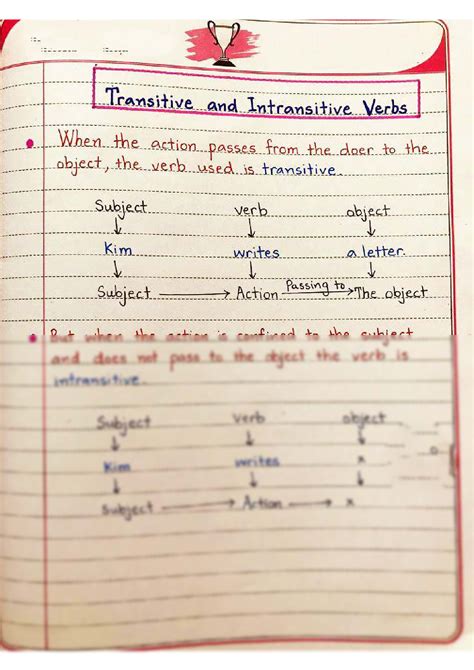 Transitive and Intransitive Verbs
When the action passes from the doer to the
object, the verb used is transitive.
Subject verb object
↓ ↓ ↓
Kim writes a letter.
↓ ↓ ↓
Subject → Action Passing to → The object
But when the action is confined to the subject
and does not pass to the object the verb is
intransitive.
Subject verb object
↓ ↓ ↓
Kim writes x
↓ ↓ ↓
Subject → Action → x